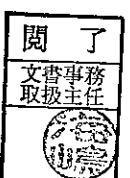 閲 了
文書事務
取扱主任